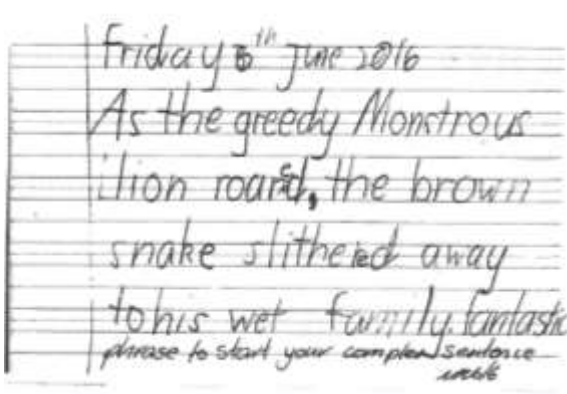 Friday 6th June 2016
As the greedy Monstrous
lion roared, the brown
snake slithered away
to his wet family. Fantastic
phrase to start your complex sentence